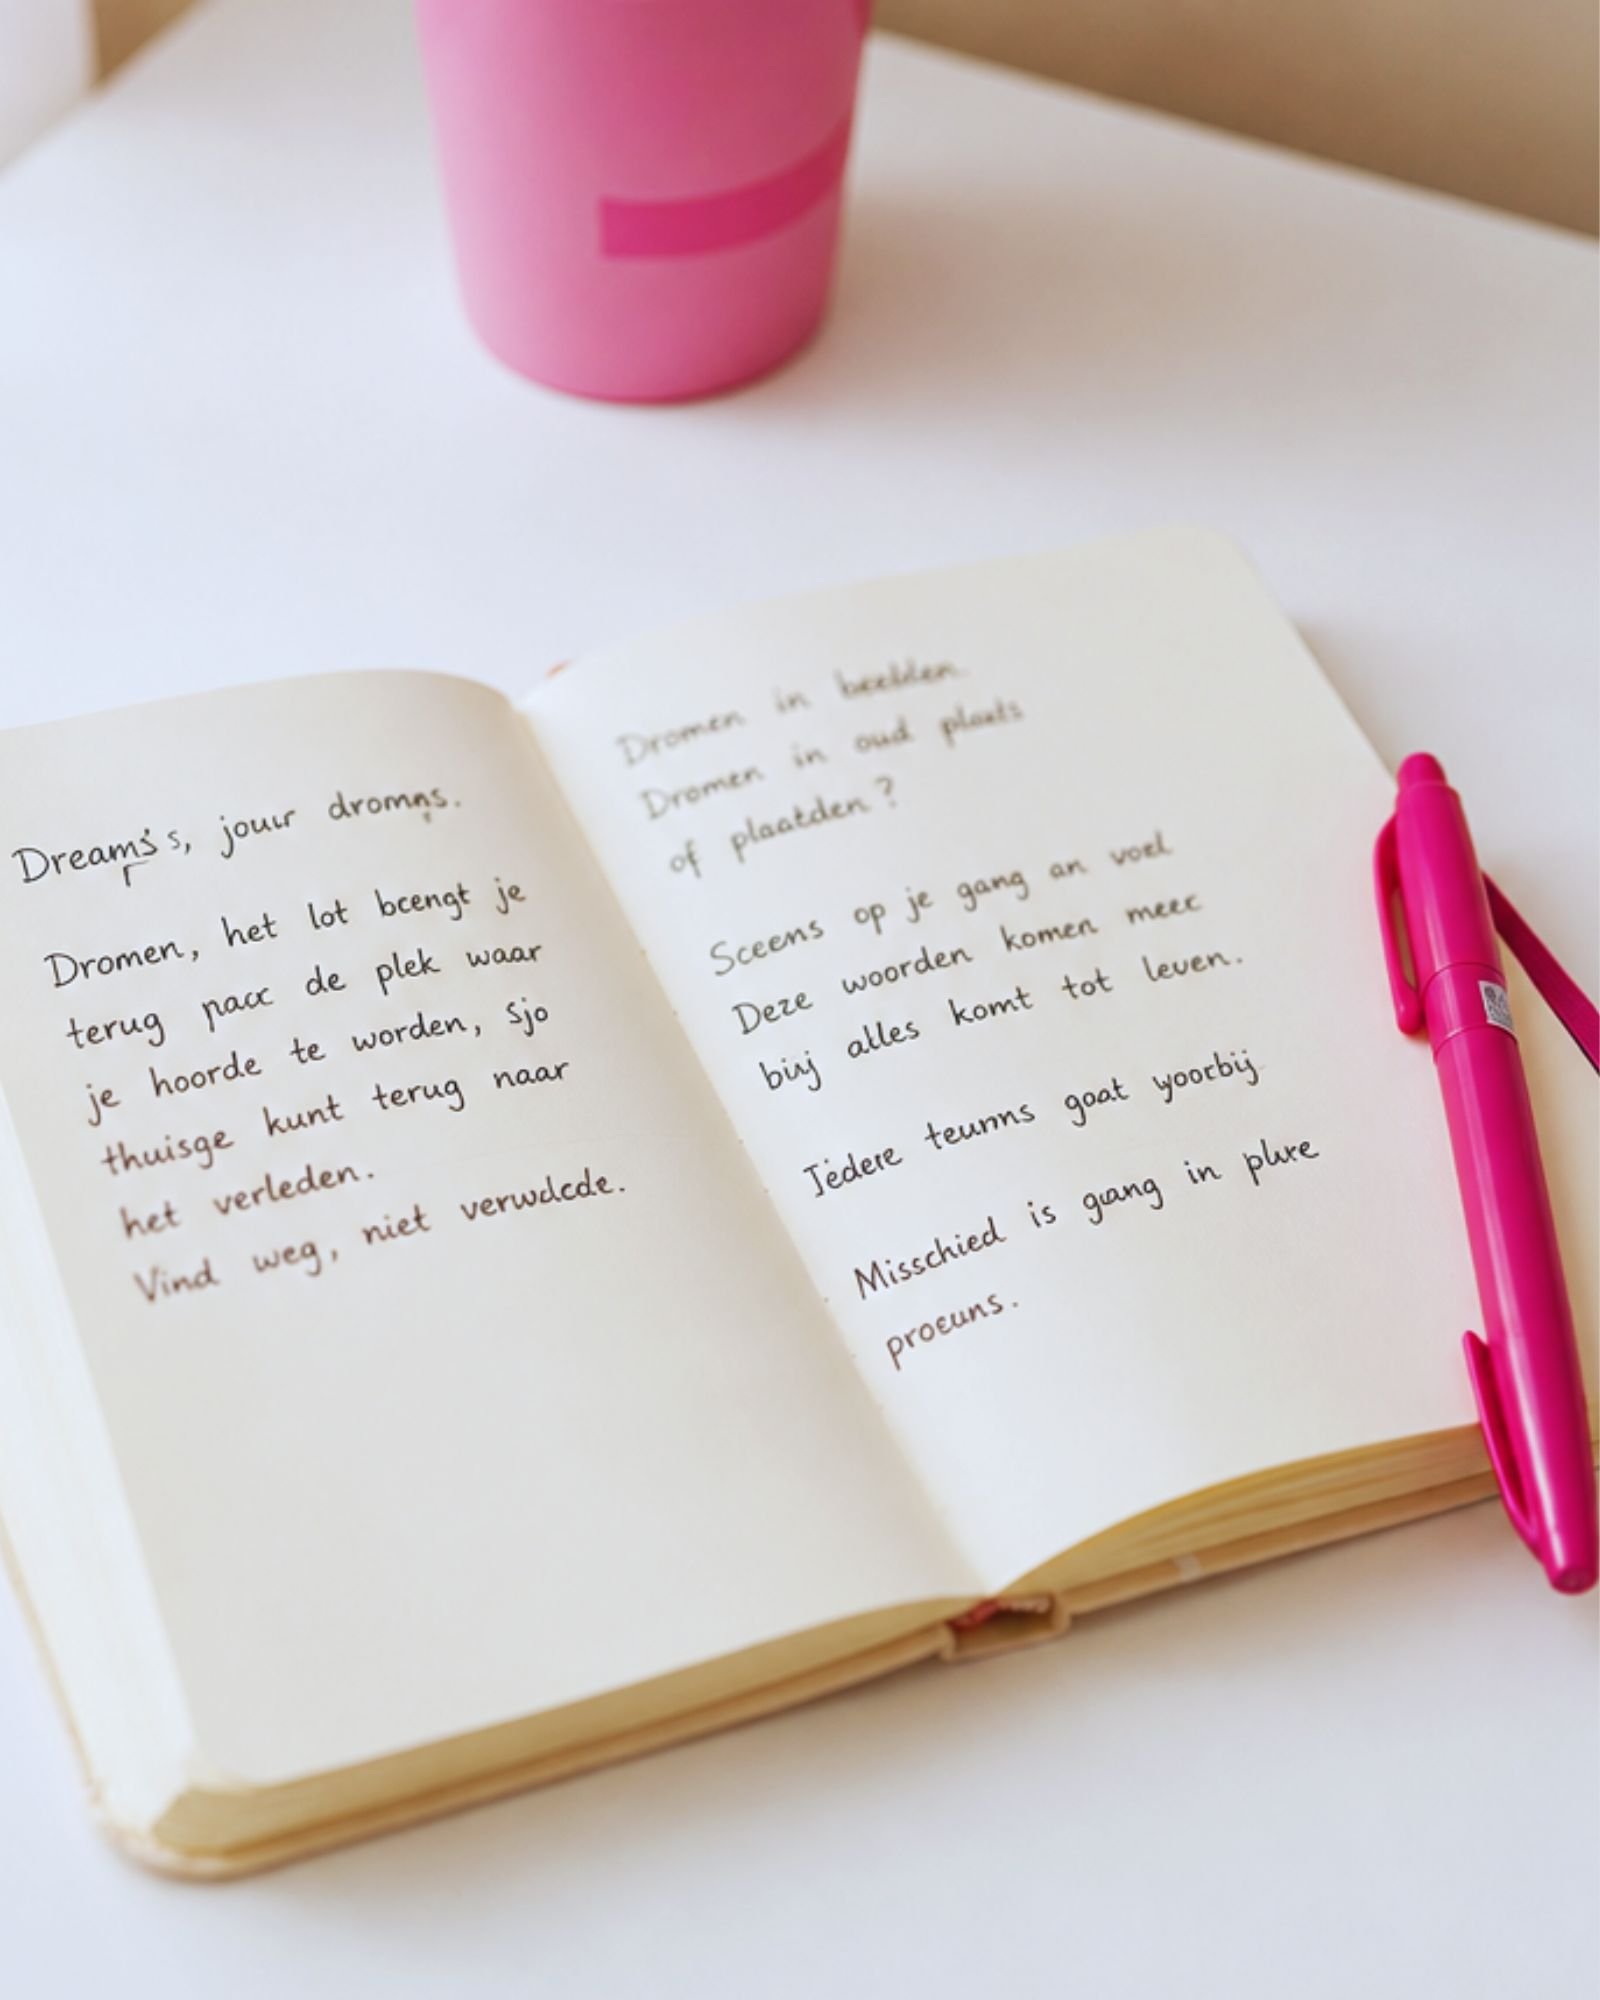 Dream's s, jouir dromns.
Dromen, het lot bcengt je
terug pacc de plek waar
je hoorde te worden, Sjo
thuisge kunt terug naar
het verleden.
Vind weg, niet verwdcde.
Dromen in beelden
Dromen in oud plaats
of plaatden?
Sceens op je gang an voel
Deze woorden komen meec
bij alles komt tot leven.
Iédere teurnns goat yoorbij
Misschied is gang in plure
proeuns.